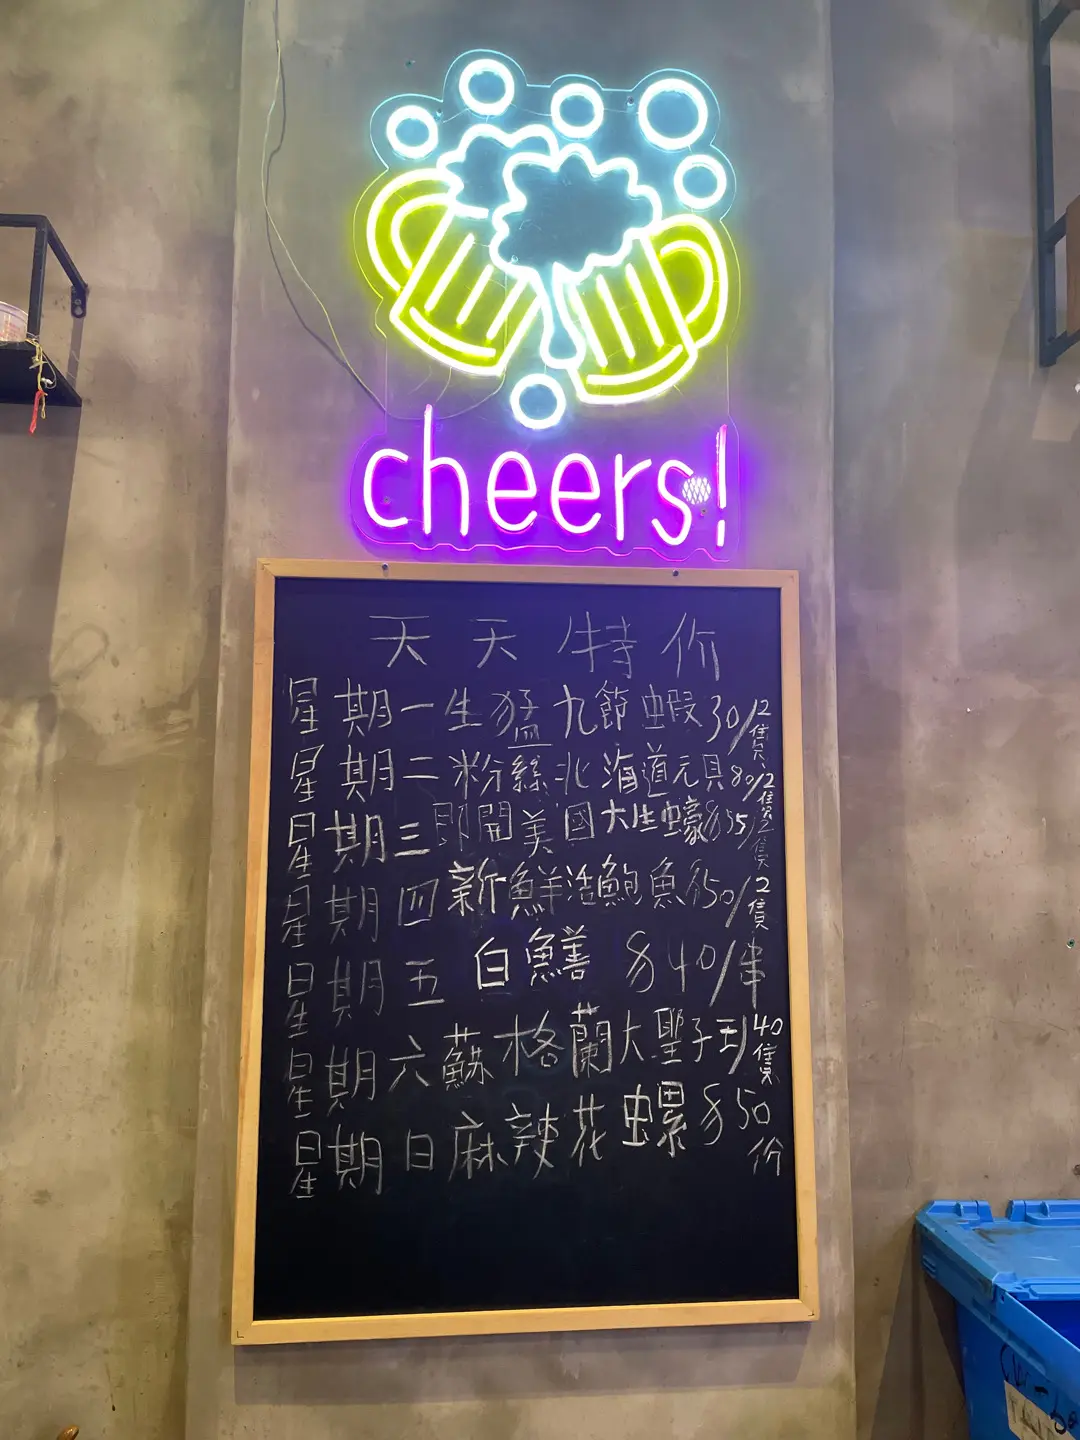 cheers!
天天特价
星期一生猛九節蝦30/2隻
星期二粉絲北海道元貝80/2隻
星期三即開美國大生蠔$35/2隻
星期四新鮮活鮑魚$50/2隻
星期五 白鱔 $40/串
星期六蘇格蘭大聖子王40隻
星期日麻辣花螺$50份